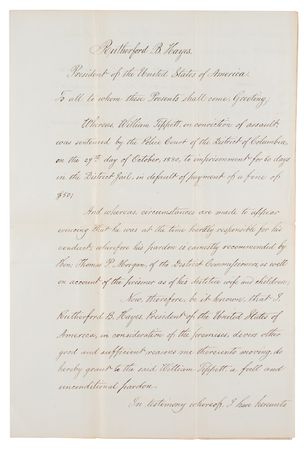 Rutherford B. Hayes,
President of the United States of America,
To all to whom these Presents shall come, Greeting;
Whereas, William Tippett, on conviction of assault,
was sentenced by the Police Court of the District of Columbia
on the 29th day of October, 1880, to imprisonment for 60 days
in the District Jail, in default of payment of a fine of
$50;
And whereas, circumstances are made to appear
showing that he was at the time hardly responsible for his
conduct, wherefore his pardon is earnestly recommended by
Hon. Thomas P. Morgan, of the District Commissioners, as well
on account of the prisoner as of his destitute wife and children;
Now, therefore, be it known, that I
Rutherford B. Hayes, President of the United States of
America, in consideration of the premises, divers other
good and sufficient reasons me thereunto moving, do
hereby grant to the said William Tippett, a full and
unconditional pardon.
In testimony whereof, I have hereunto